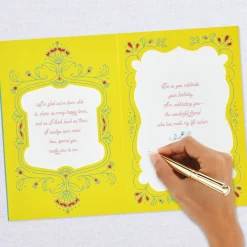 I'm glad we've been able
to share so many happy times,
and as I think back on them,
I realize even more
how special you
really are to me.
As you celebrate
your birthday,
I'm celebrating you—
the wonderful friend
who has made my life richer.